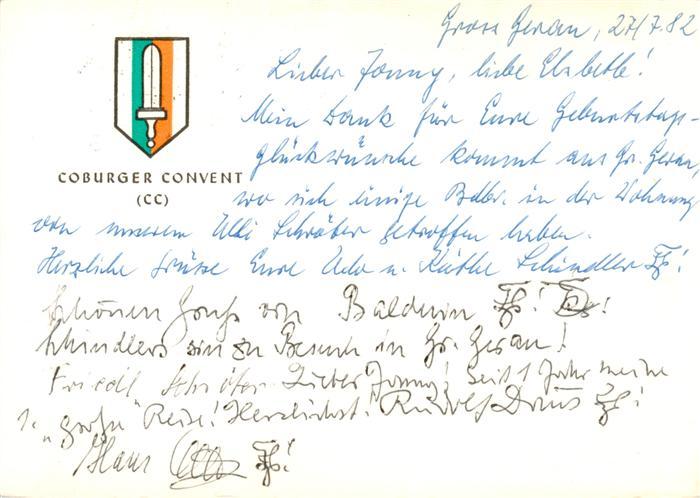 Gross Gerau, 27/7.82
Lieber Jonny, liebe Elsbeth!
COBURGER CONVENT
(CC)
Mein Dank für Eure Geburtstags-
glückwünsche kommt aus Gr. Gerau,
wo sich einige Bdbr. in der Wohnung
von unserem Uli Schröter getroffen haben.
Herzliche Grüsse Eure Udo u. Käthe Schindler
Schönen Gruß von Balduin
Schindlers sin zu Besuch in Gr. Gerau!
Friedl Schröter Lieber Jonny! Seit 1 Jahr meine
1. "große" Reise! Herzlichst! Rudolf
Hans